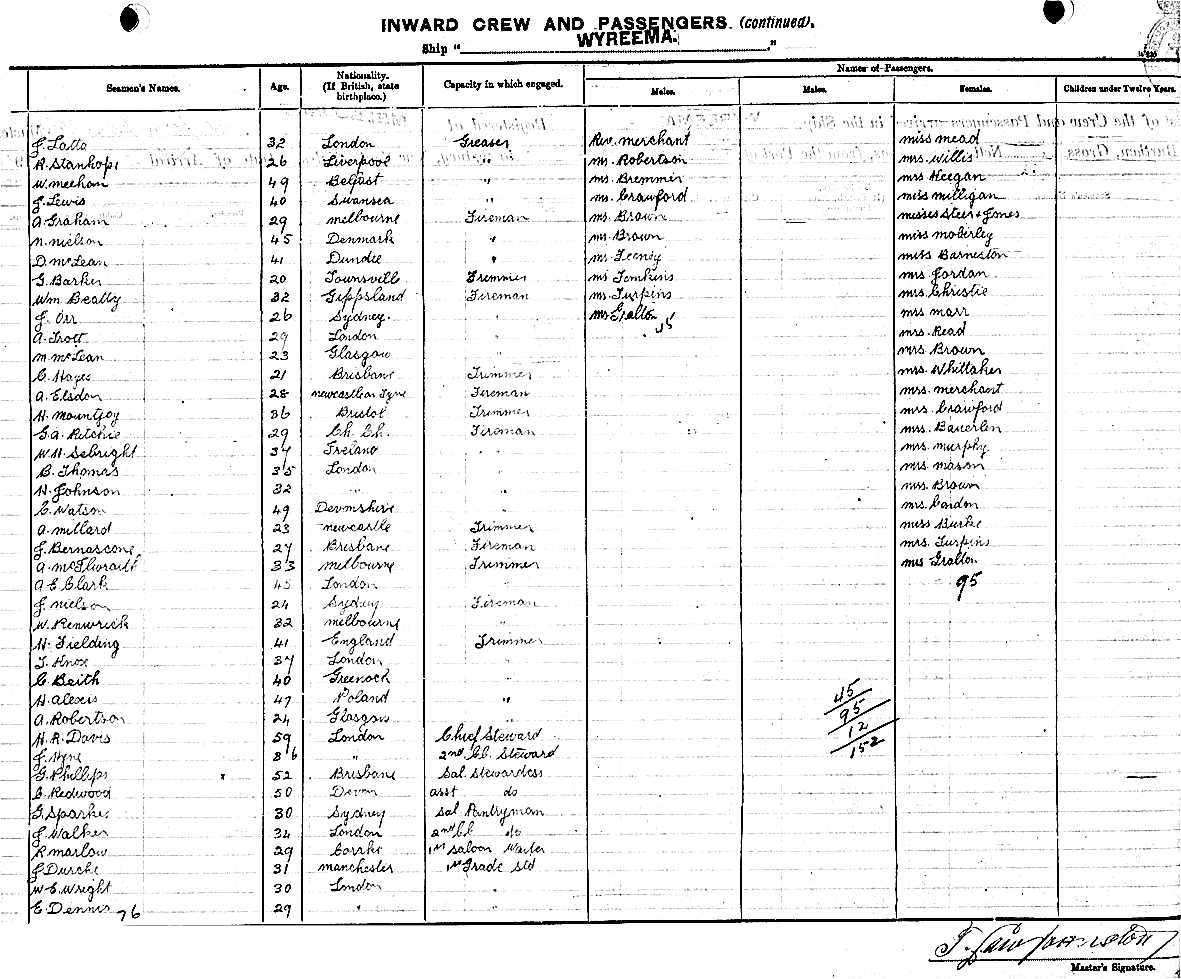 INWARD CREW AND PASSENGERS. (continued).
Ship "WYREEMA."
Seamen's Names. Age. Nationality. (If British, state birthplace.) Capacity in which engaged. Names of Passengers.
Males. Males. Females. Children under Twelve Years.
J. Latta 32 London Greaser Rev. merchant miss mead
A. Stanhope 26 Liverpool " mr. Robertson mrs. Willis
W. meehan 49 Belfast " mr. Bremmer mrs Keegan
J. Lewis 40 Swansea " mr. Crawford miss milligan
A. Graham 29 melbourne Fireman mr. Brown misses Steer & Jones
N. Nielson 45 Denmark " mr. Brown miss moberley
D. McLean 41 Dundee " mr. Feeney miss Barneston
G. Barker 20 Townsville Trimmer mr Tomkins mrs. Jordan
Wm Beatty 32 Gippsland Fireman mr. Turpins mrs. Christie
J. Orr 26 Sydney. " mr. Gratton mrs marr
45
A. Trott 29 London " mrs. Read
M. McLean 23 Glasgow " mrs Brown
C. Hayes 21 Brisbane Trimmer mrs. Whittaker
A. Elsdon 28 newcastle on Tyne Fireman mrs. merchant
H. Mountjoy 36 Bristol Trimmer mrs. Crawford
G.A. Ritchie 29 Ch. Ch. Fireman mrs. Bauerlen
W.H. Sebright 34 Ireland " mrs. murphy
B. Thomas 35 London " mrs mason
H. Johnson 32 " " mrs. Brown
C. Watson 49 Devonshire " mrs. Cardon
A. Millard 23 newcastle Trimmer miss Burke
J. Bernascone 27 Brisbane Fireman mrs. Turpins
A. McIlwraith 33 melbourne Trimmer mrs Gratton
A E Clark 45 London "
95
J. Nielson 24 Sydney Fireman
W. Renwick 32 melbourne "
H. Fielding 41 England Trimmer
T. Knox 37 London "
C. Beith 40 Greenock "
H. Alexis 47 Poland "
45
A. Robertson 24 Glasgow "
95
H. R. Davis 59 London Chief Steward
12
J. Hyne 36 " 2nd Cl. Steward
152
G. Phillips 52 Brisbane Sal. Stewardess
B. Redwood 50 Devon asst do
G. Sparkes 30 Sydney Sal Pantryman
J. Walker 34 London 2nd Cl do
R Marlow 29 Corke 1st Saloon Waiter
J Durche 31 manchester 1st Grade Std
W. E. Wright 30 London
E. Dennis 29 "
76
Master's Signature.